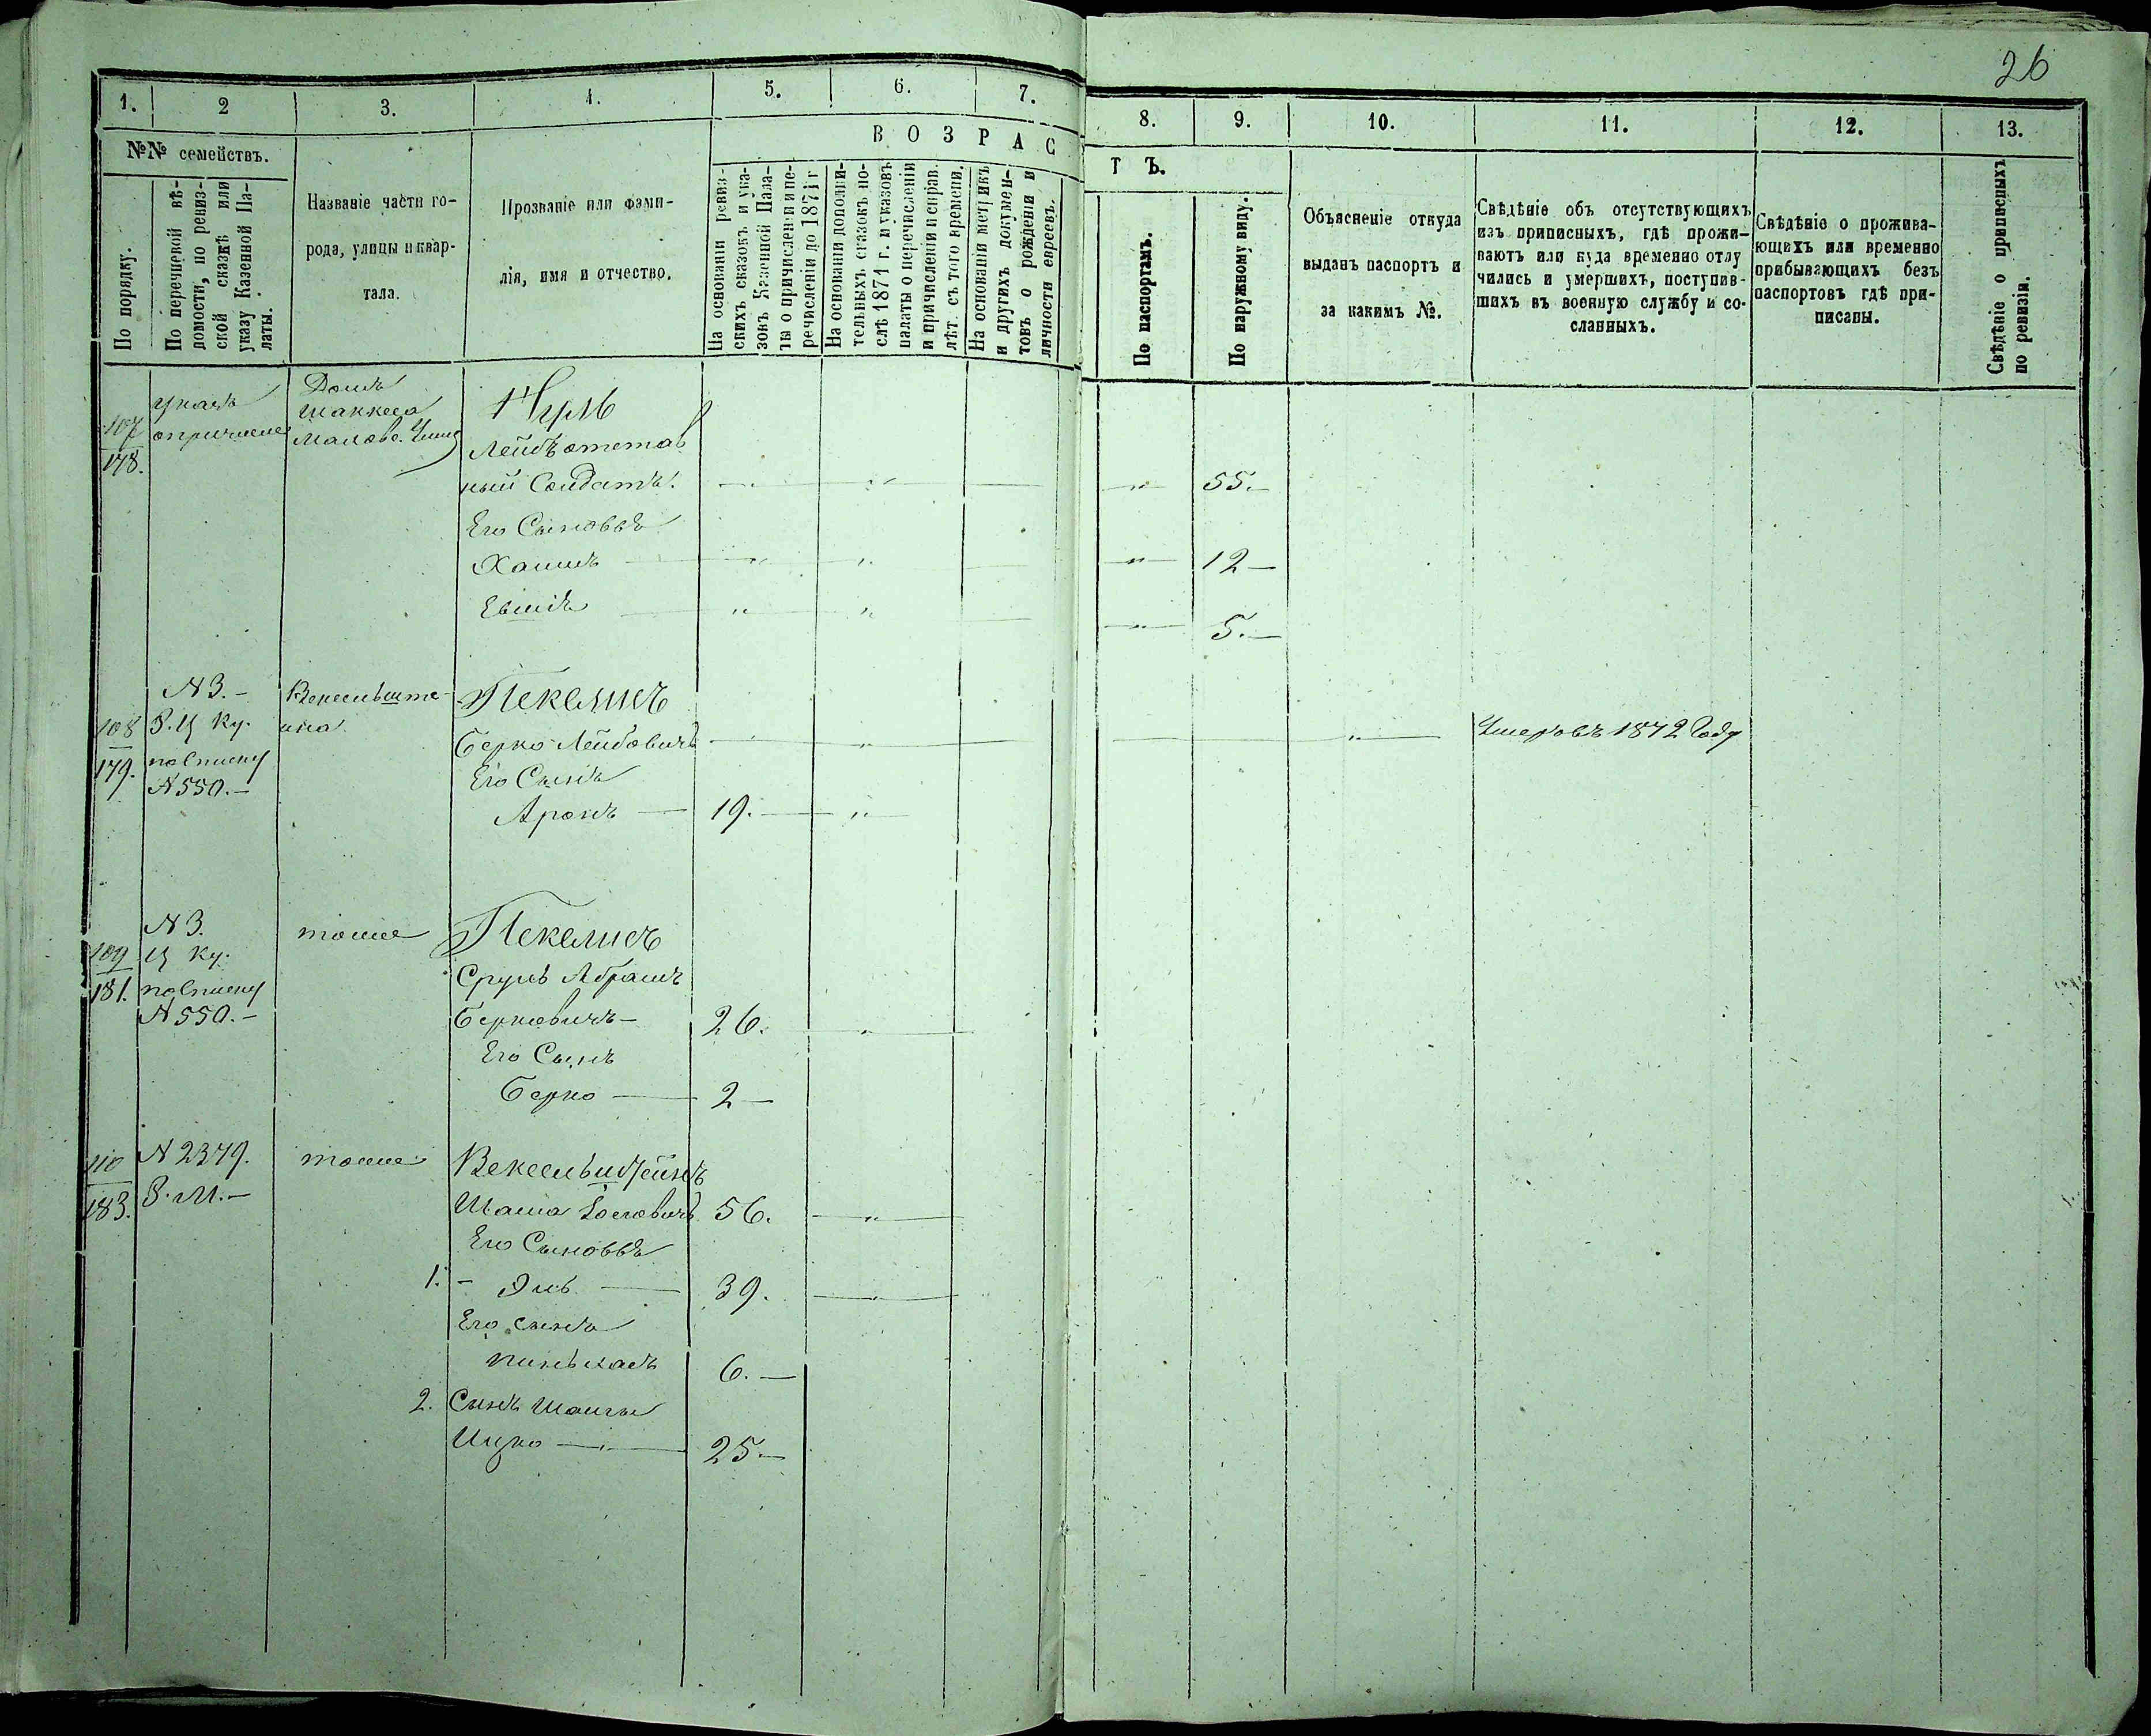 26
1. 2 3. 4. 5. 6. 7. 8. 9. 10. 11. 12. 13.
№№ семействъ.
В О З Р А С Т Ъ.
По порядку.
По перечневой вѣ-
домости, по ревиз-
ской сказкѣ или
указу Казенной Па-
латы.
Названіе части го-
рода, улицы и квар-
тала.
Прозваніе или фами-
лія, имя и отчество.
На основаніи ревиз-
скихъ сказокъ и ука-
зовъ Казенной Пала-
ты о причисленіи и пе-
речисленіи до 1871 г
На основаніи дополни-
тельныхъ сказокъ по-
слѣ 1871 г. и указовъ
палаты о перечисленіи
и причисленіи и справ.
лѣт. съ того времени.
На основаніи метрикъ
и другихъ докумен-
товъ о рожденіи и
личности евреевъ.
По паспортамъ.
По наружному виду.
Объясненіе откуда
выданъ паспортъ и
за какимъ №.
Свѣдѣніе объ отсутствующихъ
изъ приписныхъ, гдѣ прожи-
ваютъ или куда временно отлу
чились и умершихъ, поступив-
шихъ въ военную службу и со-
сланныхъ.
Свѣдѣніе о прожива-
ющихъ или временно
прибывающихъ безъ
паспортовъ гдѣ при-
писаны.
Свѣдѣніе о приписныхъ
по ревизіи.
107
178.
указъ
опричисле
Домъ
Шаккеса
Лейбъ отстав
ный Солдатъ. 55.
Его Сыновья
Хаимъ 12
5.
108
179.
N 3.
З. Ц Ку.
N 550.
Вексельште
ина
Пекелисъ
Берко Лейбовичъ Умеръ въ 1872 Году
Его Сынъ
Аронъ 19.
109
181.
N 3.
Ц Ку.
N 550.
тоже
Пекелисъ
Сруль Абрамъ
Берковичъ 26.
Его Сынъ
Берко 2
110
183.
N 2379.
З. М.
тоже
Вексельштейнъ
Шама Іосевичъ 56.
Его Сыновья
1. Эль 39.
Его сынъ
Пинькасъ 6.
2. Сынъ Шамы
Ицко 25